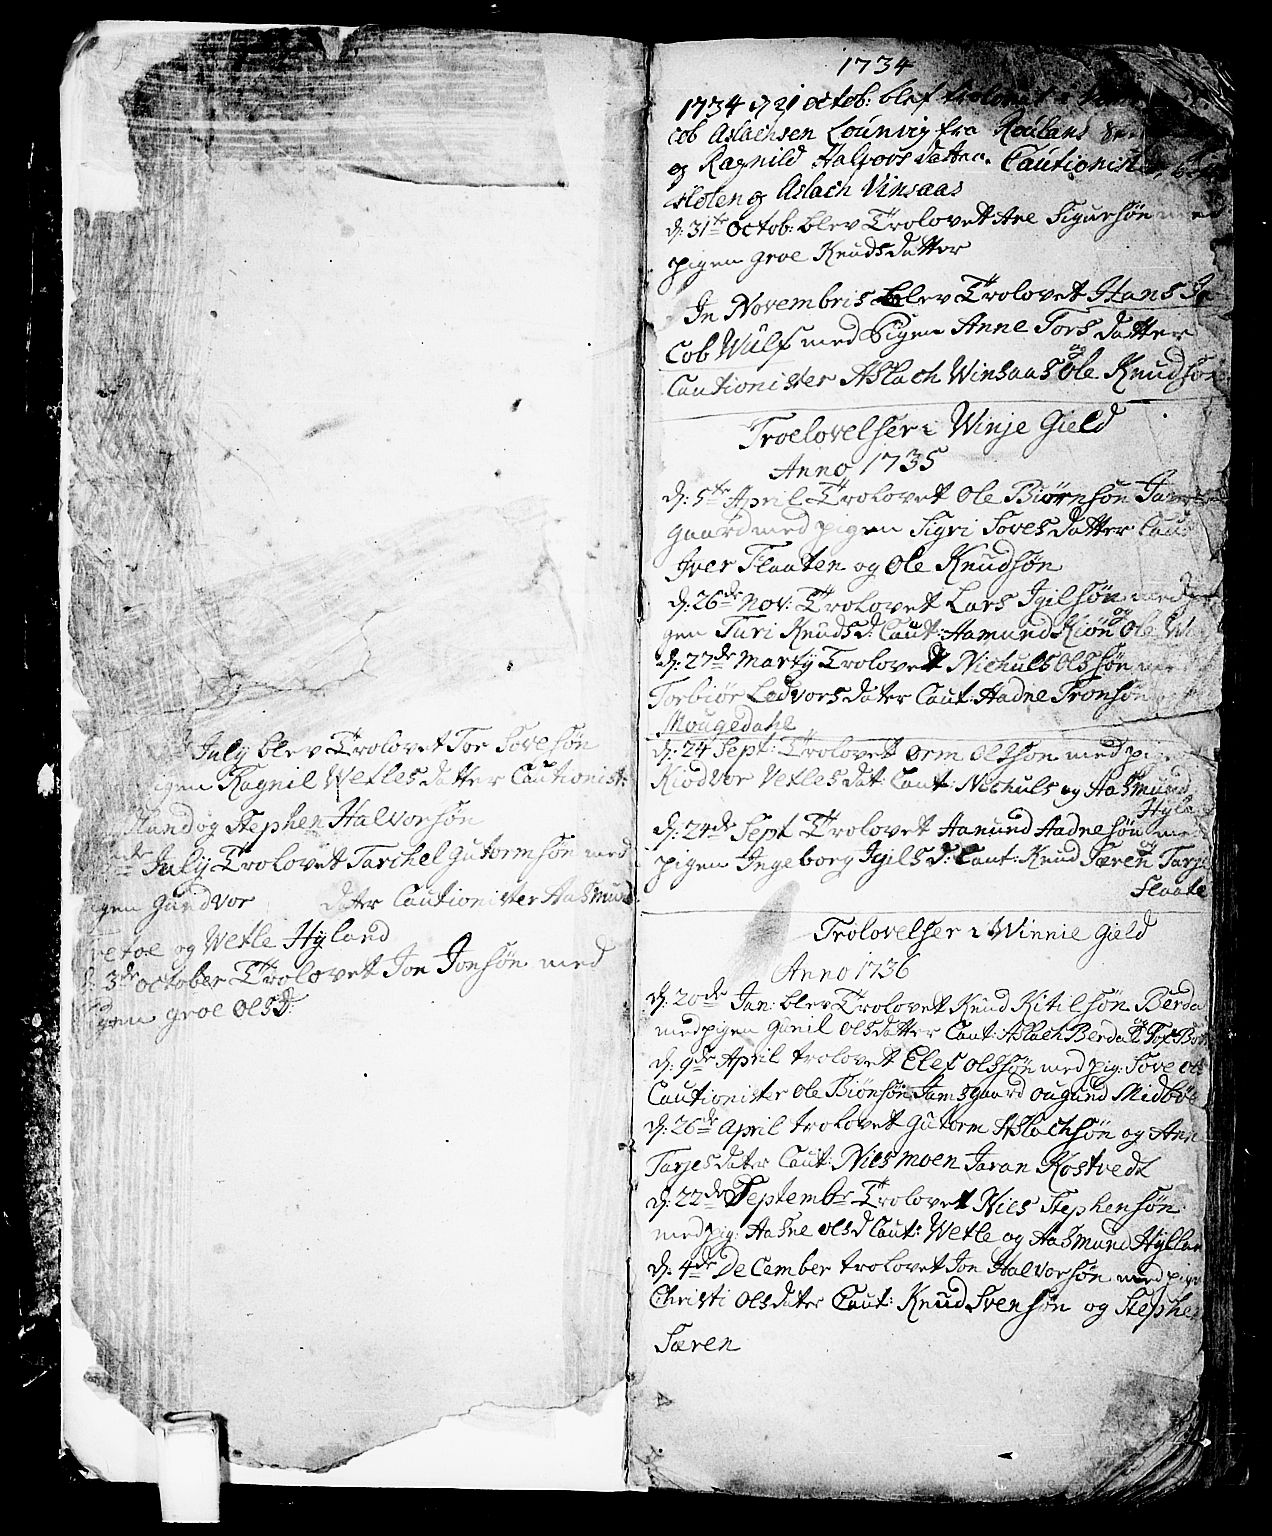 July blev Trolovet Tor Sovesøn
igen Ragnil Vetlesdatter Cautionist:
Stephen Halvorsøn
July Trolovet Tarchel Gutormsøn med
igen Gundvor datter Cautionister Aasmund
og Wetle Hyland
d: 3de october Trolovet Jon Jonsøn med
igen groe olsd:
1734
1734 d 21 octob: blef
cob Aslachsen Lounvig fra
og Ragnild Halvors datter. Cautionist
og Aslach Vinsaas
d: 31te octob: blev Trolovet Are Sigursøn med
pigen groe Knudsdatter
Jn Novembris blev Trolovet Hans Ja
cob Wulf med Pigen Anne Tors datter
Cautionister Aslach Winsaas og ole Knudsøn
Troelovelser i Winje Gield
Anno 1735
d: 5te April Trolovet ole Biørnsøn
gaard med pigen Sigri Sovesdatter Caut
Jver Flaaten og ole Knudsøn
d: 26de nov: Trolovet Lars Jgilsøn med pi
gen Turi Knudsd: Caut: Aamund Kiøn og ole
d: 27de Martij Trolovet Nichuls olssøn med
Torbiør Ledvorsdater Caut: Aadne Tronsøn
Mougedahl
d: 24 Sept: Trolovet orm olsson med pigen
Kiødvor Vetlesdat: Caut: Nichuls og Aasmund
Hyla
d: 24de Sept Trolovet Aanund Aadnesøn med
pigen Jngeborg Jgilsd: Caut: Knud Særen og Tarje
Flaate
Trolovelser i Winnie Gield
Anno 1736
d: 20de Jan: blev Trolovet Knud Kitilsøn Berda
med pigen Gunil olsdatter Caut: Aslach Berdal
d: 9de April trolovet Elef olssøn med pig: Sove ols
Cautionister ole Biønsøn Jamsgaard ougund Midbøe
d: 26de April trolovet Gutorm Aslachsøn og Ann
Tarjesdater Caut: Niels moen Jaran Kostvedt
d: 22de Septembr Trolovet Niels Stephensøn
med pig: Aasne olsd Caut: Wetle og Aasmund Hyllan
d: 4de December trolovet Jon Halvorsøn med pige
Christi olsdater Caut: Knud Svensøn og Stephen
Særen